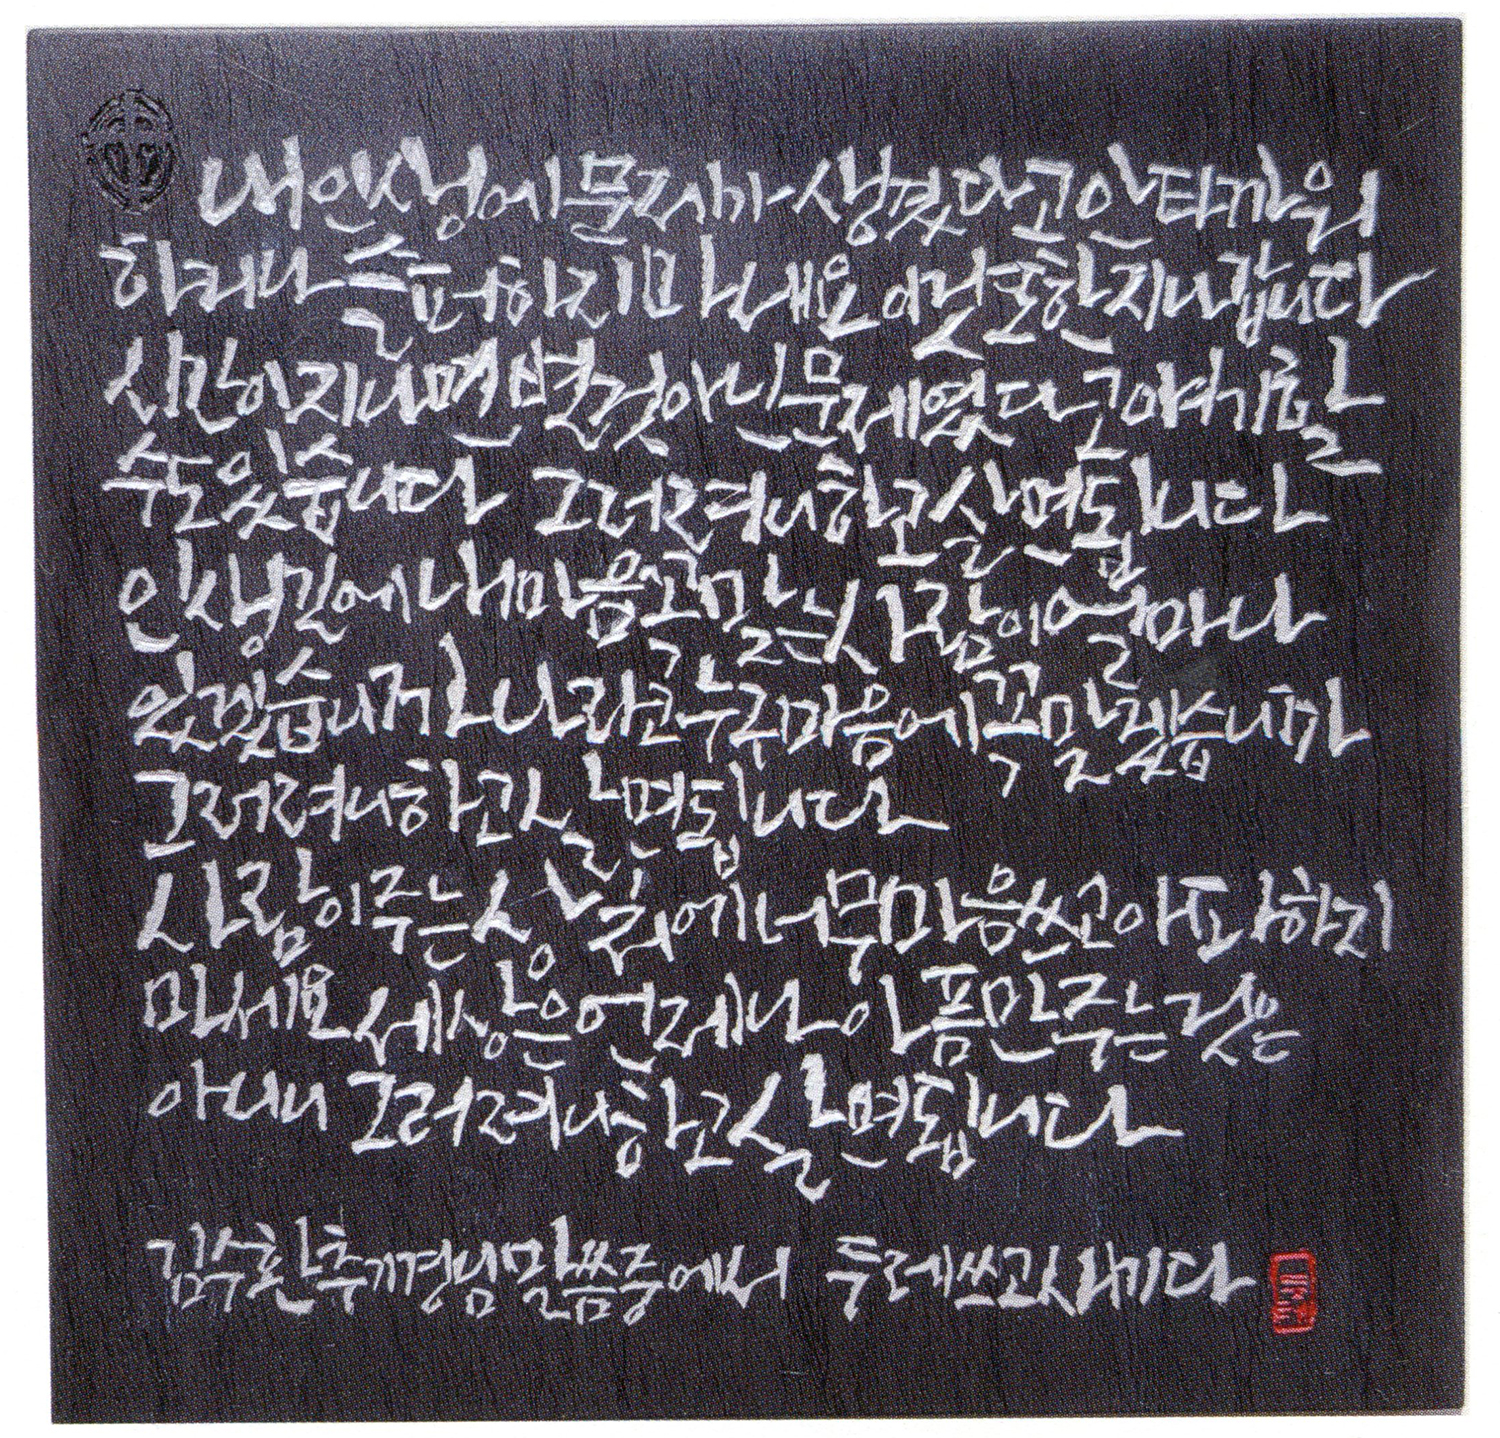 내 인생에 문제가 생겼다고 안타까워
하거나 슬퍼하지만 마세요 이 또한 지나갑니다
시간이 지나면 별것 아닌 문제였다고 여겨질
수 있습니다 그러려니 하고 살면 됩니다
인생길에 내 마음 꼭 맞는 사람이 얼마나
있겠습니까 나라고 누구 마음에 꼭 맞겠습니까
그러려니 하고 살면 됩니다
사람이 주는 상처에 너무 마음 쓰고 아파하지
마세요 세상은 어제나 아픔만 주는 것은
아니니 그러려니 하고 살면 됩니다
김수환 추기경님 말씀 중에서 두레 쓰고 새기다